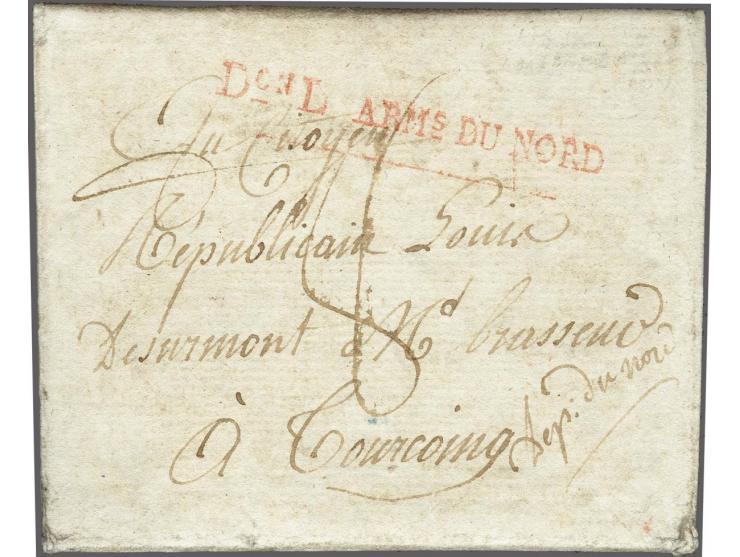 DON L ARMS DU NORD
Au Citoyen
Républicain Louis
Desurmont & Md brasseur
à Tourcoing Dep: du nord
8